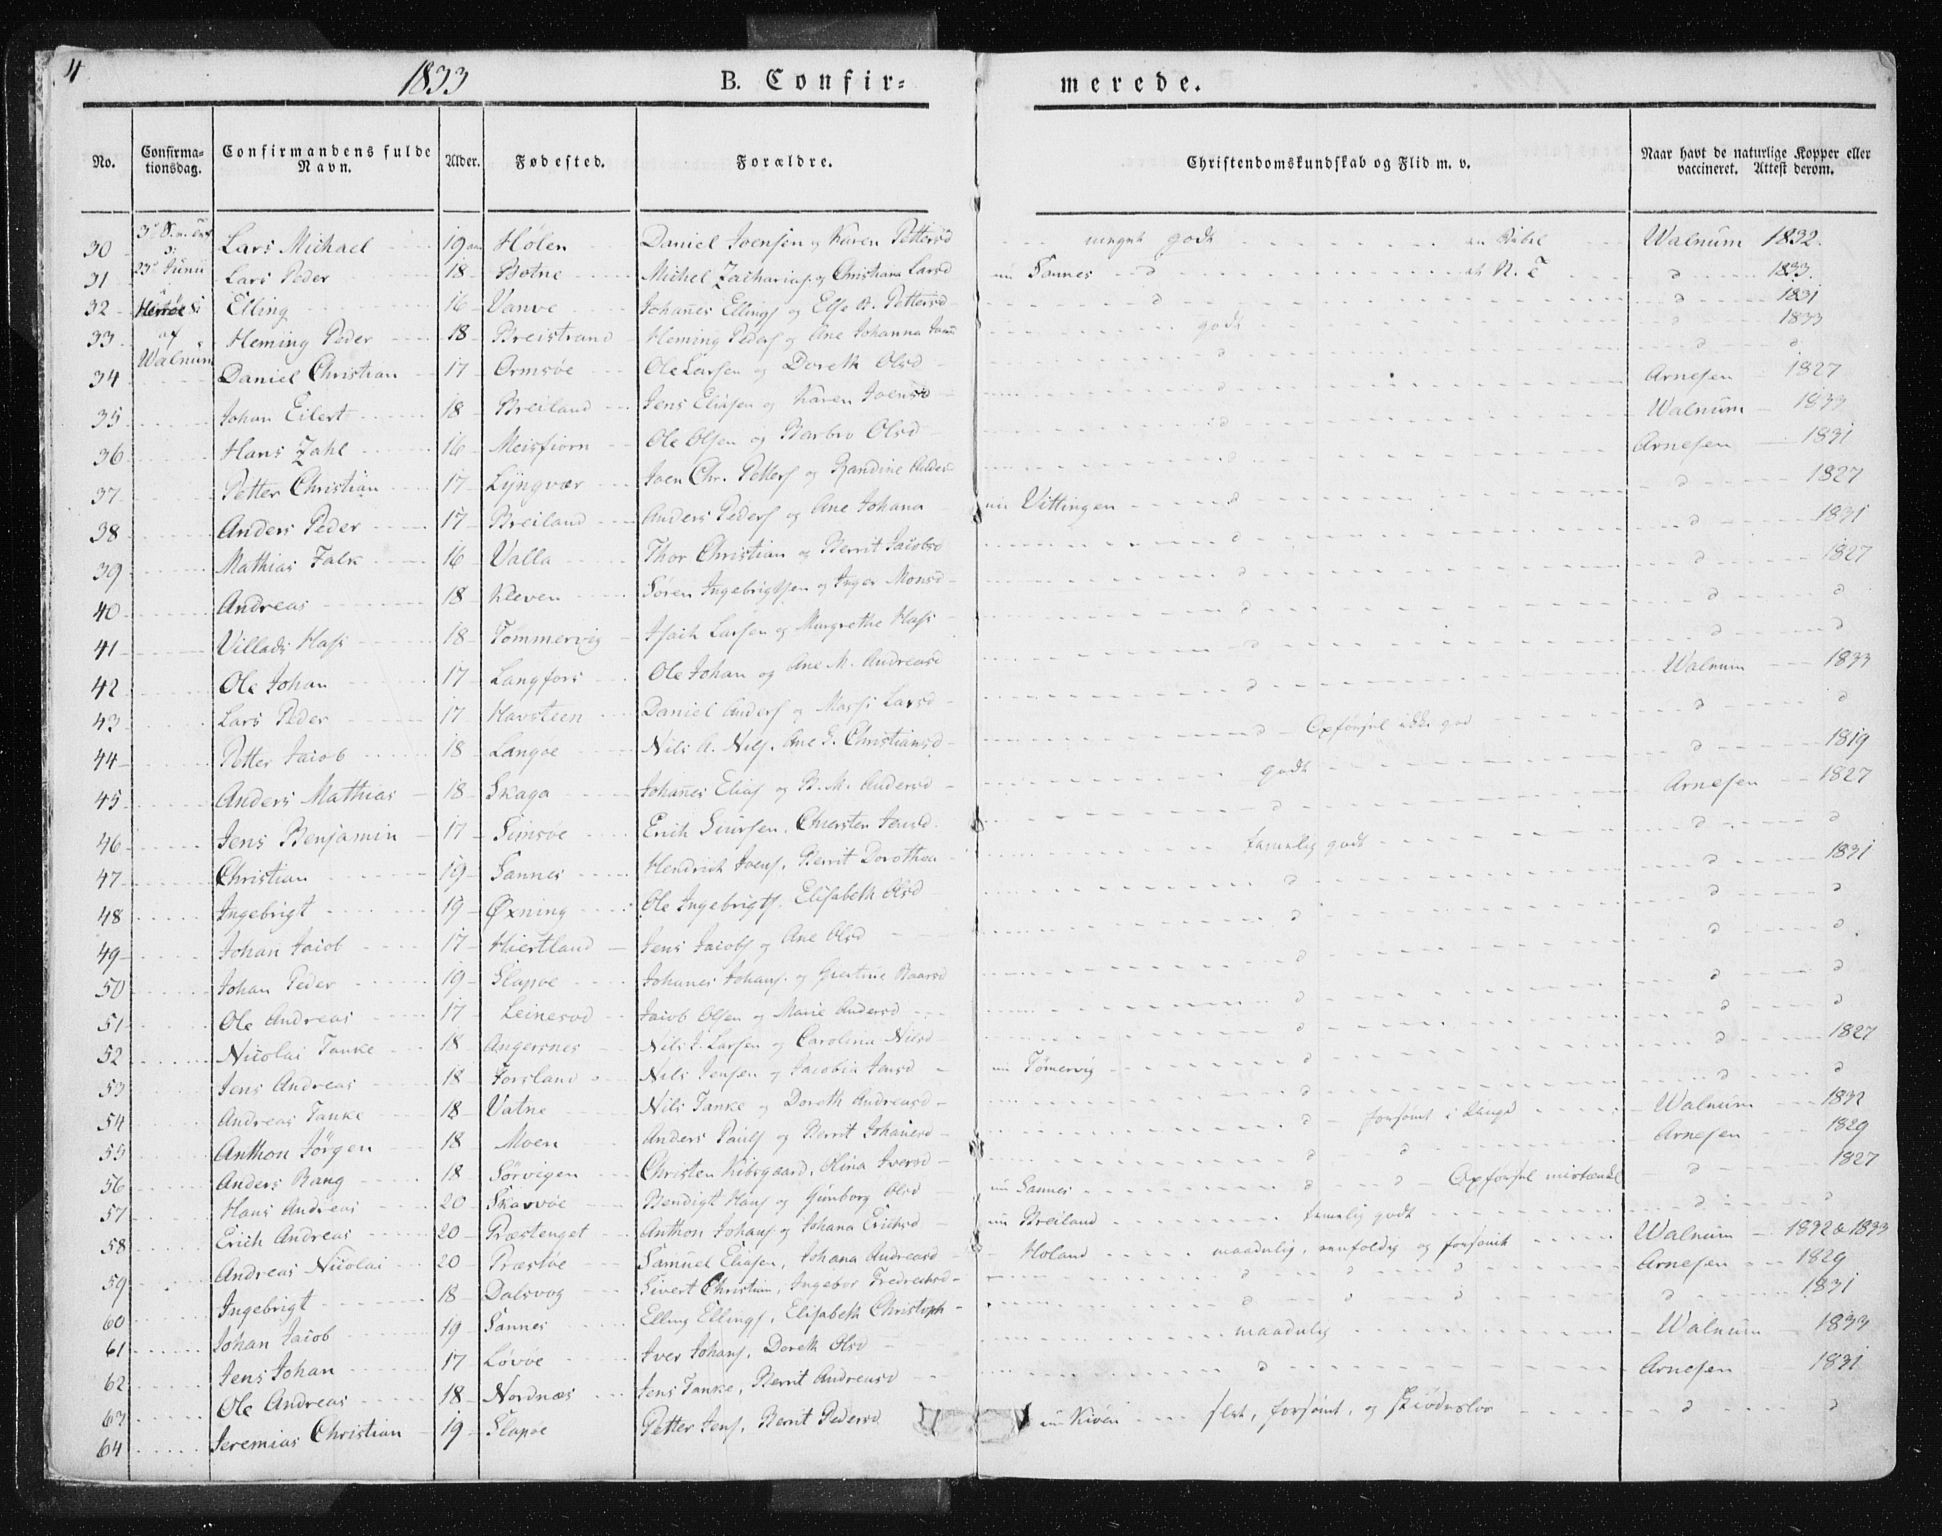 4 1833 B. Confir= merede.
No. Confirma-tionsdag. Confirmandens fulde Navn. Alder. Fødested. Forældre. Christendomskundskab og Flid m. v. Naar havt de naturlige Kopper eller vaccineret. Attest derom.
30 Lars Michael 19 Hølen Daniel Joensen og Karen Pettersd meget godt en Bibel Walnum 1832.
31 23d Junii Lars Peder 18 Botne Michel Zacharias og Christiana Larsd nu Sannes d et N. T. d 1833
32 Herrøe Elling 16 Vanve Johanes Ellings og Else A. Pettersd d d 1831
33 af Heming Peder 18 Breistrand Heming Peders og Ane Johanna godt 1833
34 Walnum Daniel Christian 17 Ormsøe Ole Larsen og Doreth Olsd d d d
35 Johan Eilert 18 Breiland Jens Eliasen og Karen Joensd Arnesen 1827
36 Hans Zahl 16 Meisfiorn Ole Olsen og Barbro Olsd d Walnum 1833
37 Petter Christian 17 Lyngvær Joen Chr. Petters og Randine Arnesen 1831
38 Anders Peder 17 Breiland Anders Peders og Ane Johana nu Vittingen d d 1827
39 Mathias Falk 16 Valla Thor Christian og Berrit Jacobsd d d 1831
40 Andreas 18 Kleven Søren Ingebrigtsen og Inger Monsd d d 1827
41 Villads Hass 18 Tommervig Isach Larsen og Margrethe Hass d d d
42 Ole Johan 17 Langfors Ole Johan og Ane M. Andreasd d d d
43 Lars Peder 17 Havsteen Daniel Anders og Larsd d Walnum 1833
44 Petter Jacob 18 Langøe Nils A. Nils. Ane G. Christiansd d Opførsel ikke god d d
45 Anders Mathias 18 Skaga Johanes Elias og B. M. Andersd godt d 1819
46 Jens Benjamin 17 Simsøe Erich Siursen. Chiersten Jensd. d Arnesen 1827
47 Christian 19 Sannes Hendrich Joens. Berrit Dorothea temelig godt d d
48 Ingebrigt 19 Øxning Ole Ingebrigts. Elisabeth Olsd d d 1831
49 Johan Jacob 17 Hiertland Jens Jacobs og Ane Olsd d d d
50 Johan Peder 19 Slapøe Johanes Johans. og Giertine Baarsd d d d
51 Ole Andreas 17 Leinesod Jacob Olsen og Marie Andersd d d d
52 Nicolai Tanke 18 Angersnes Nils J. Larsen og Carolina Nilsd d d d
53 Jens Andreas 18 Forsland Nils Jensen og Jacobia Jensd nu Tømervig d d 1827
54 Andreas Tanke 18 Vatne Nils Tanke og Doreth Andreasd d d d
55 Anthon Jørgen 18 Moen Anders Pauls og Berrit Johanesd d forsømt i Walnum 1832
56 Anders Bang 18 Sørvigen Christen Kibsgaard. Olina Iversd d d Arnesen 1829
57 Hans Andreas 20 Skavøe Bendigt Hans og Gunborg Olsd nu Sannes d d Opførsel d 1827
58 Erich Andreas 20 Præstenget Anthon Johans og Johana Erichsd nu Breiland temelig godt d d
59 Andreas Nicolai 20 Præstøe Samuel Eliasen, Johana Andreasd Holand maadelig, eenfoldig og forsømt Walnum 1832 & 1833
60 Ingebrigt 18 Dalsvog Sivert Christian, Ingebor d d d Arnesen 1829
61 Johan Jacob 19 Sannes Elling Ellings, Elisabeth Christoph d d d d 1831
62 Jens Johan 17 Løvøe Iver Johans, Doreth Olsd maadelig Walnum 1833
63 Ole Andreas 18 Nordnæs Jens Tanke, Berrit Andreasd d Arnesen 1831
64 Jeremias Christian 19 Slapøe Petter Jens, Berrit Pedersd nu slet, forsømt, og skiødesløs d d